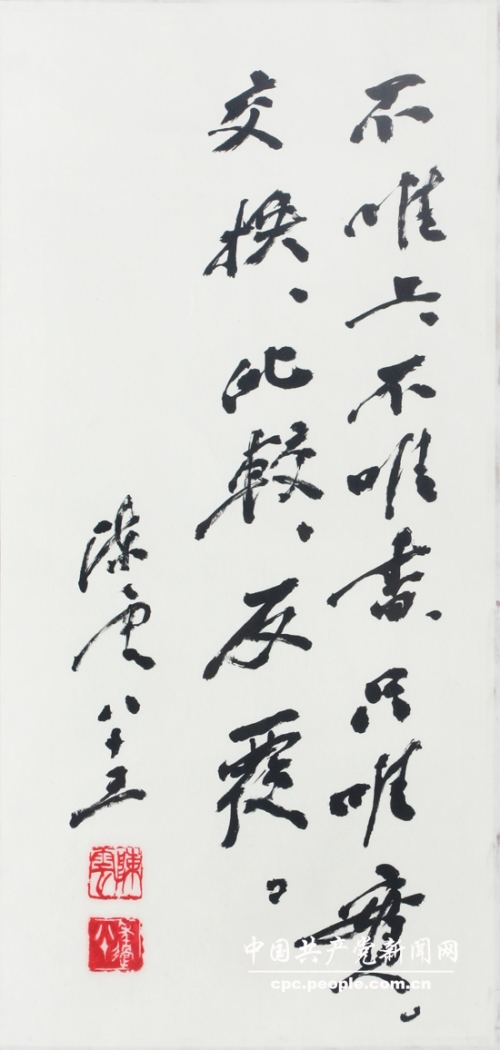 不唯上、不唯書、只唯實。
交換、比較、反覆。
陳云八十三
陳雲
中国共产党新闻网
cpc.people.com.cn